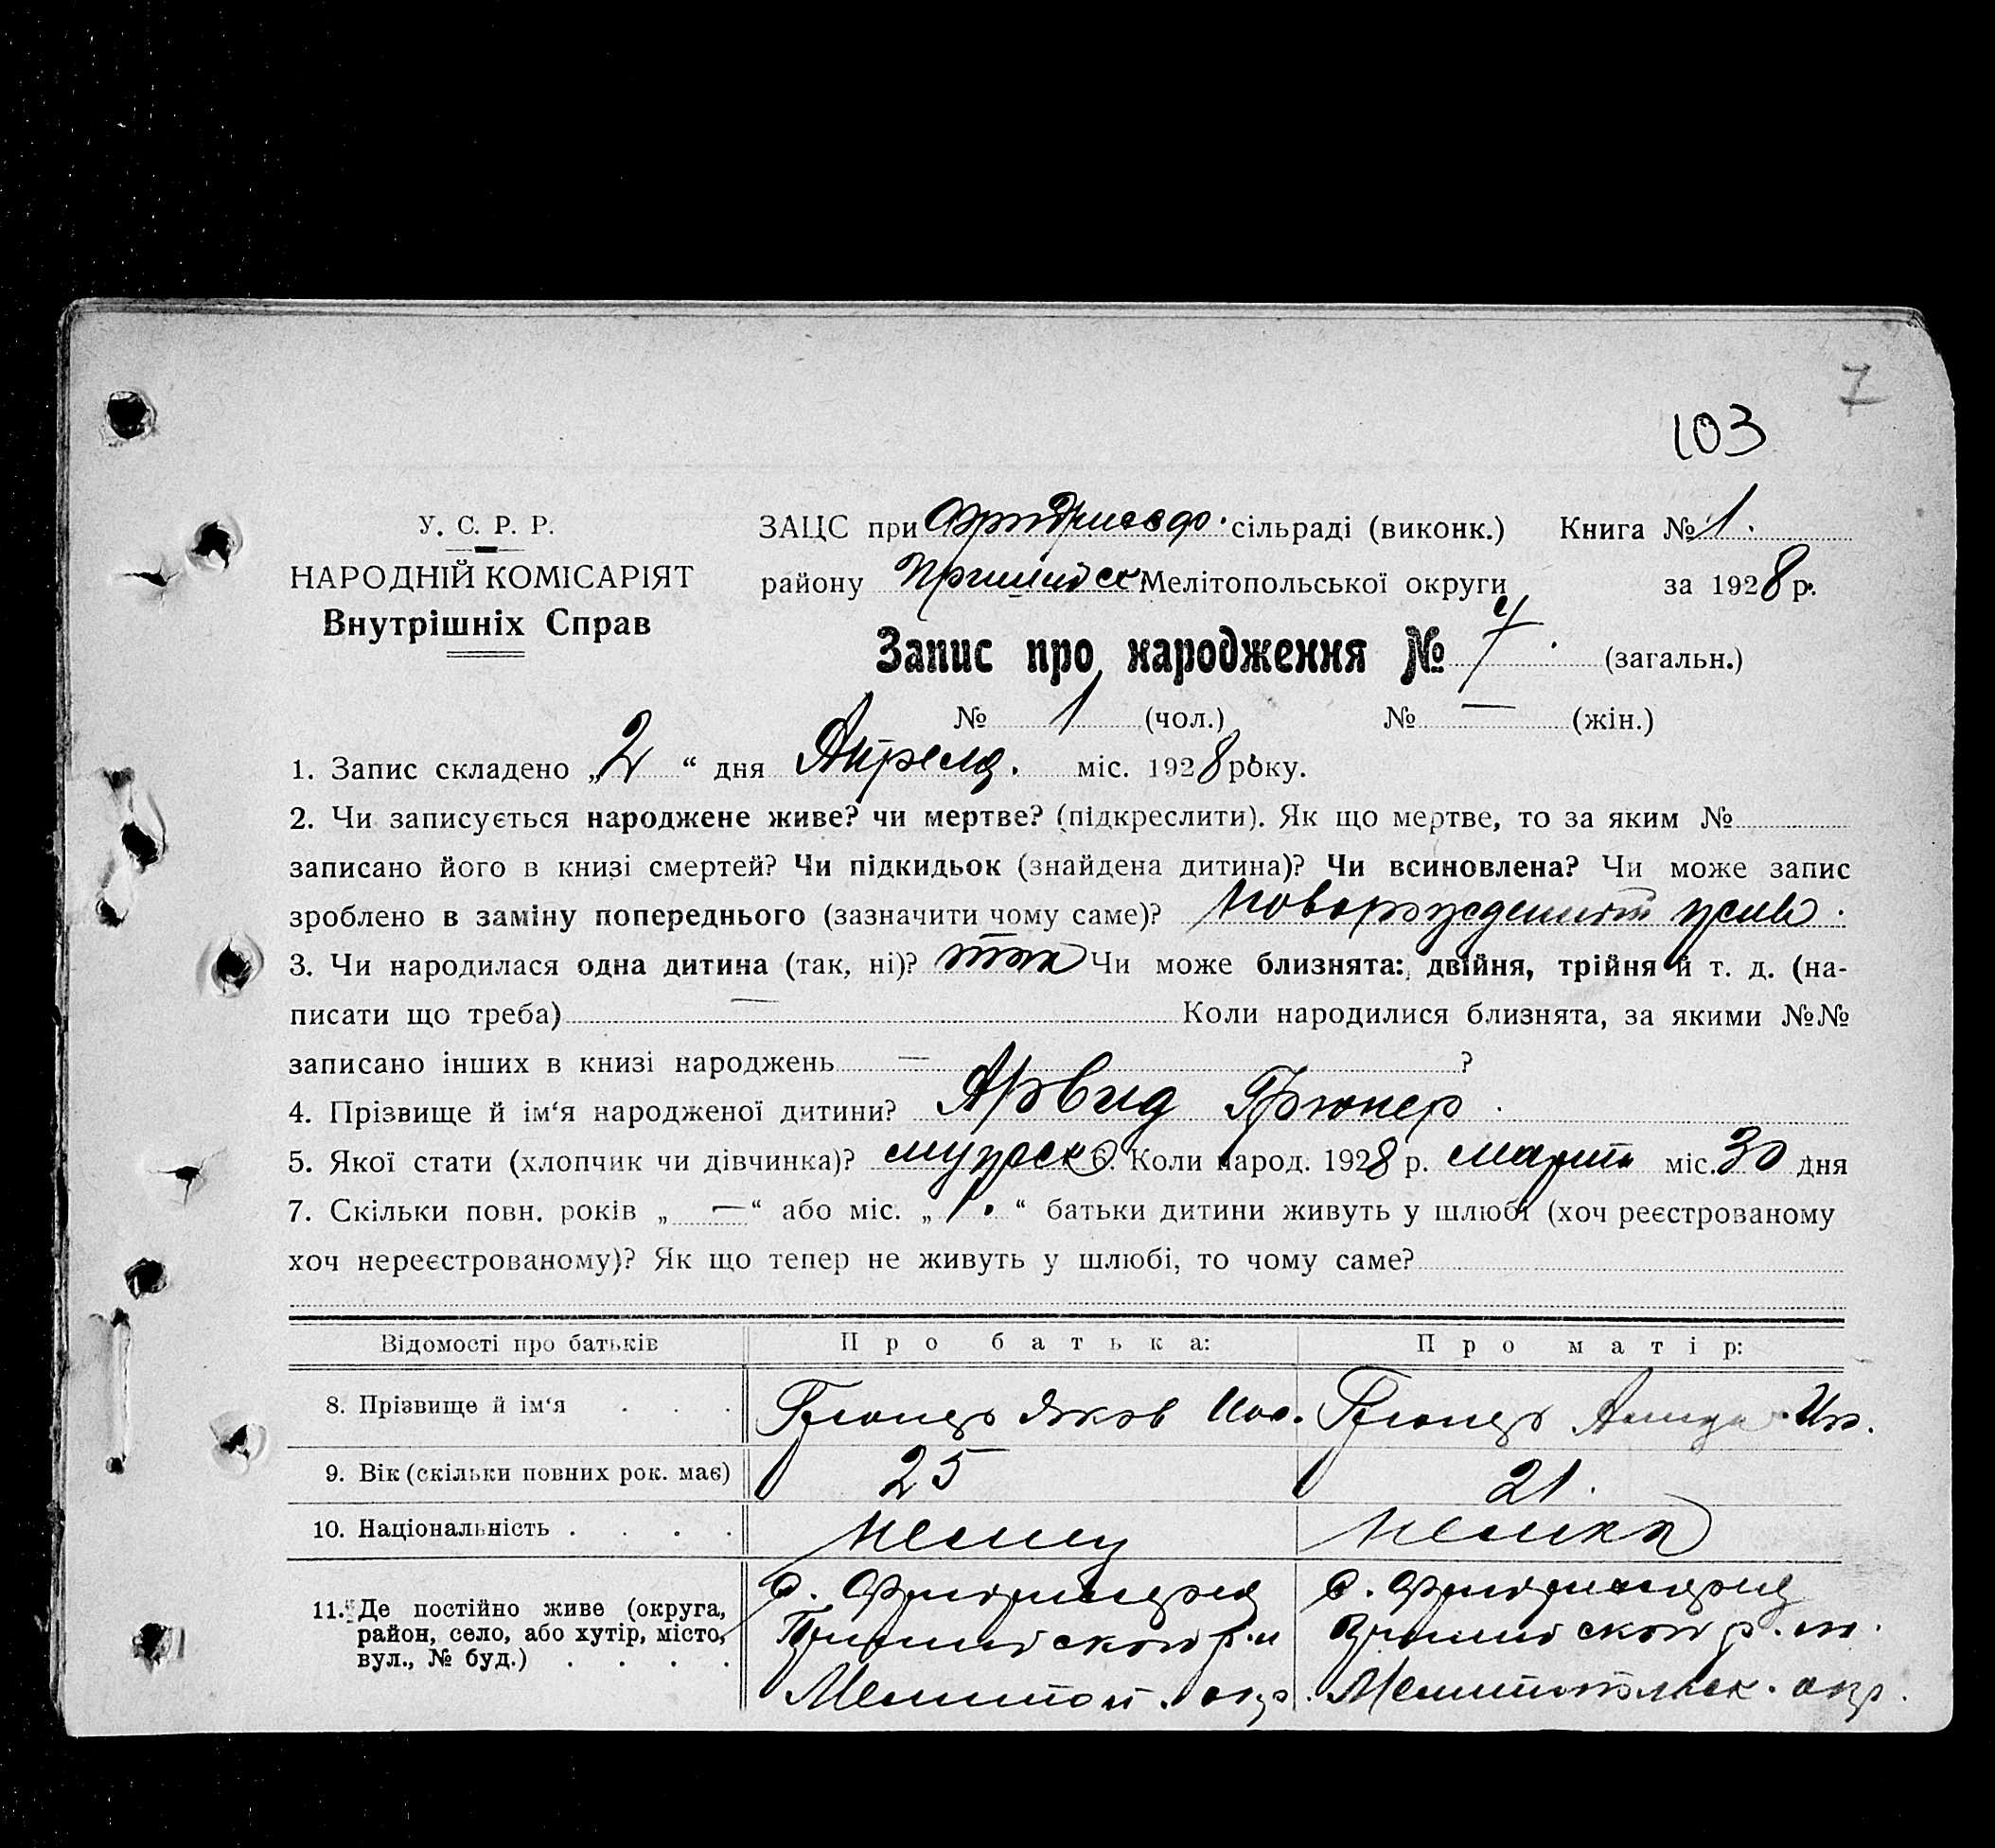 7
103
У. С. Р. Р.
НАРОДНІЙ КОМІСАРІЯТ
Внутрішніх Справ
ЗАЦС при сільраді (виконк.) Книга № 1.
району Пришибск Мелітопольської округи за 1928 р.
Запис про народження № (загальн.)
№ 1 (чол.) № — (жін.)
1. Запис складено „2“ дня Апреля. міс. 1928 року.
2. Чи записується народжене живе? чи мертве? (підкреслити). Як що мертве, то за яким №
записано його в книзі смертей? Чи підкидьок (знайдена дитина)? Чи всиновлена? Чи може запис
зроблено в заміну попереднього (зазначити чому саме)?
3. Чи народилася одна дитина (так, ні)? так Чи може близнята: двійня, трійня й т. д. (на-
писати що треба) — Коли народилися близнята, за якими №№
записано інших в книзі народжень — ?
4. Прізвище й ім‘я народженої дитини? Арвид Грюнер.
5. Якої стати (хлопчик чи дівчинка)? мужск 6. Коли народ. 1928 р. марта міс. 30 дня
7. Скільки повн. років „ — “ або міс. „ 1. “ батьки дитини живуть у шлюбі (хоч реєстрованому
хоч нереєстрованому)? Як що тепер не живуть у шлюбі, то чому саме?
Відомості про батьків Про батька: Про матір:
8. Прізвище й ім‘я . . . Грюнер Яков Грюнер
9. Вік (скільки повних рок. має) 25 21.
10. Національність . . . . немец немка
11. Де постійно живе (округа,
район, село, або хутір, місто,
вул., № буд.) . . . .
с.
Пришибской р-н
Мелитоп. окр.
с.
Пришибской р. н.
Мелитопольск. окр.